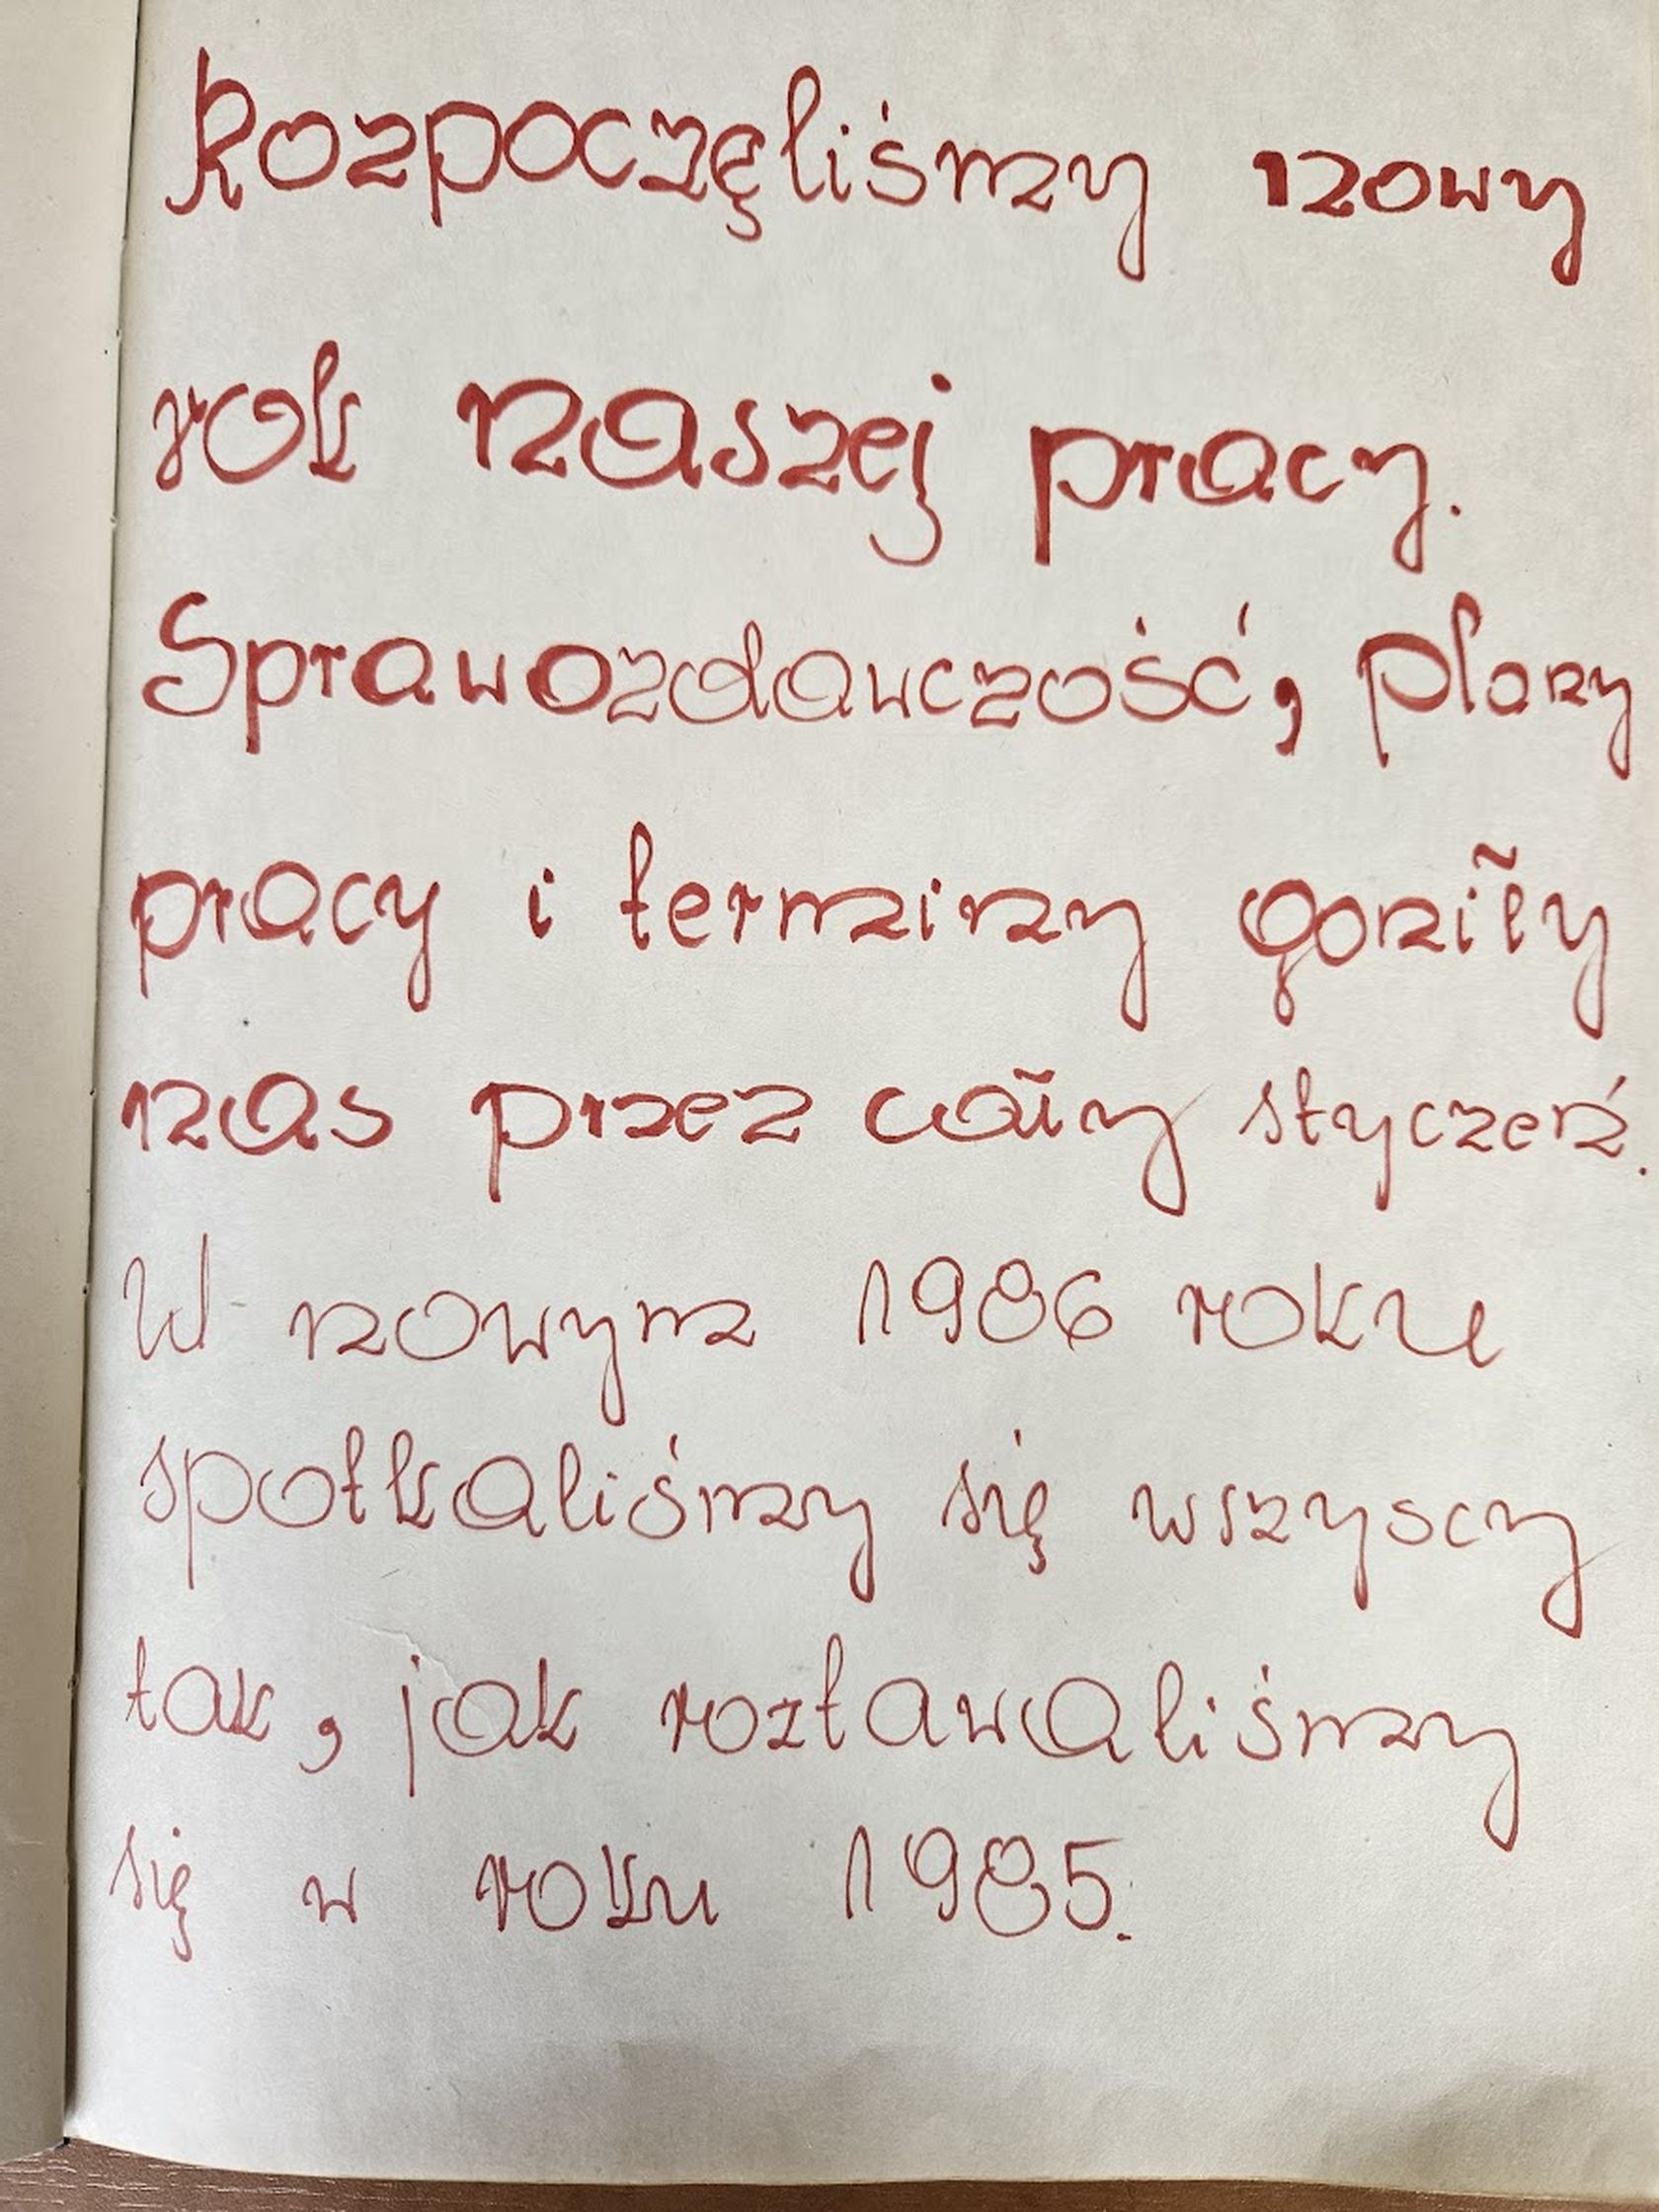 Rozpoczęliśmy nowy
rok naszej pracy.
Sprawozdawczość, plany
pracy i terminy goniły
nas przez cały styczeń.
W nowym 1986 roku
spotkaliśmy się wszyscy
tak, jak roztawaliśmy
się w roku 1985.